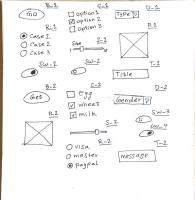 B-1 C-1 D-1
GO option 1 Type
option 2
R-1 option 3 P-1
Case 1
Case 2 Size S-1
Case 3
SW-1 SW-2 T-1
Title
B-2 C-2 D-2
Get Egg Gender
wheat
P-2 milk SW-3
S-2 SW-4
R-2 T-2
visa
master message
Paypal